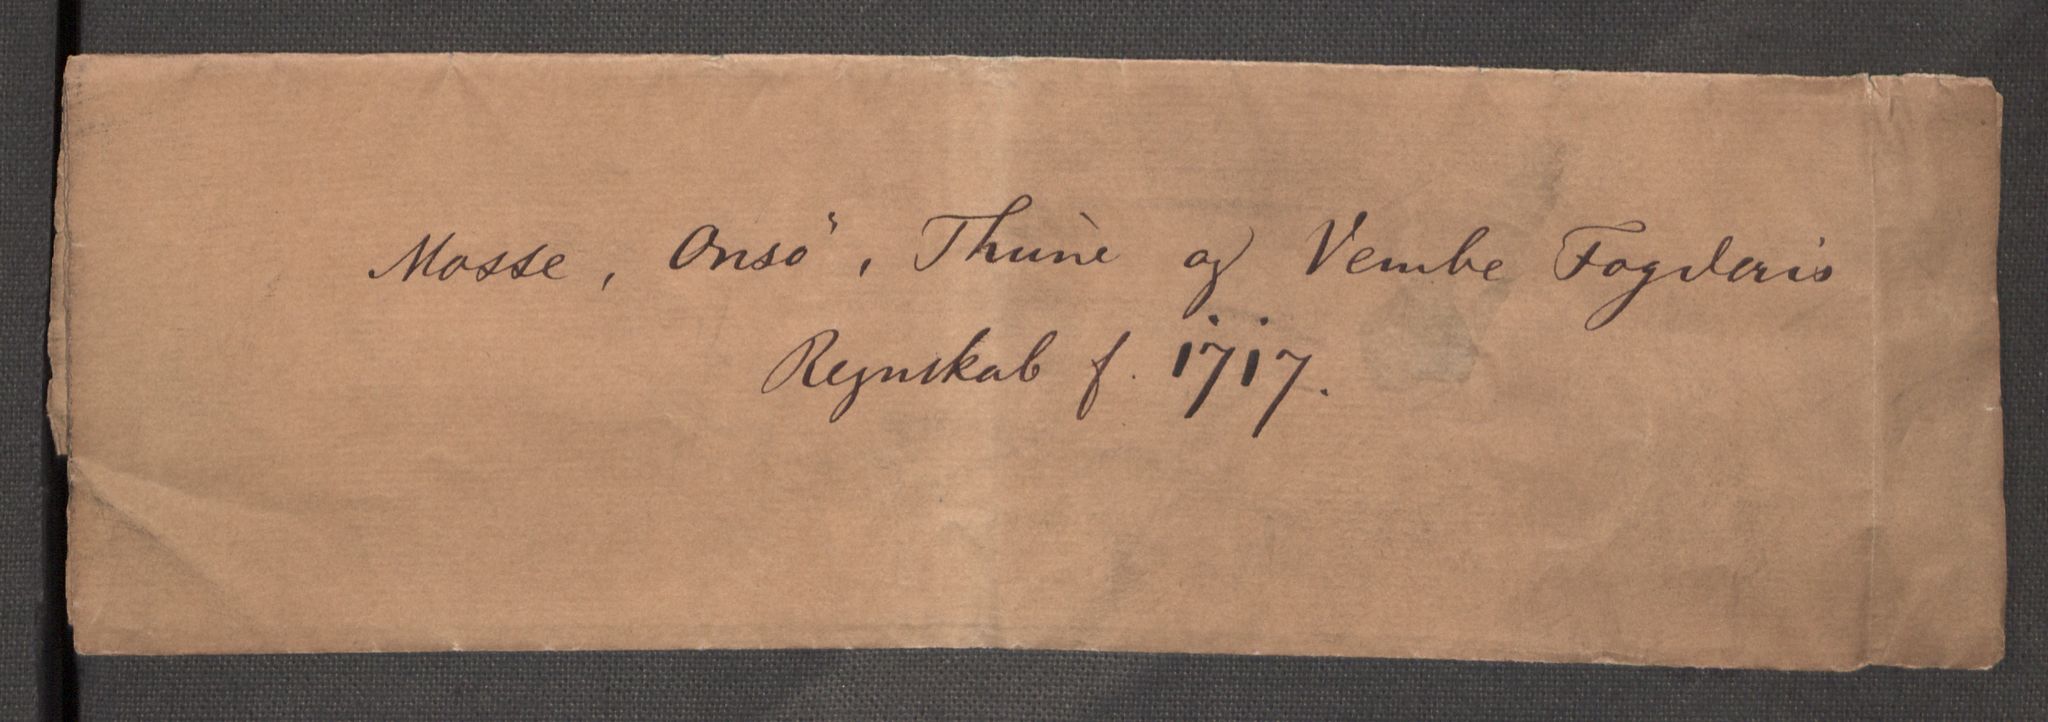 Mosse, Onsö, Thune og Vembe Fogderis
Regnskab f. 1717.